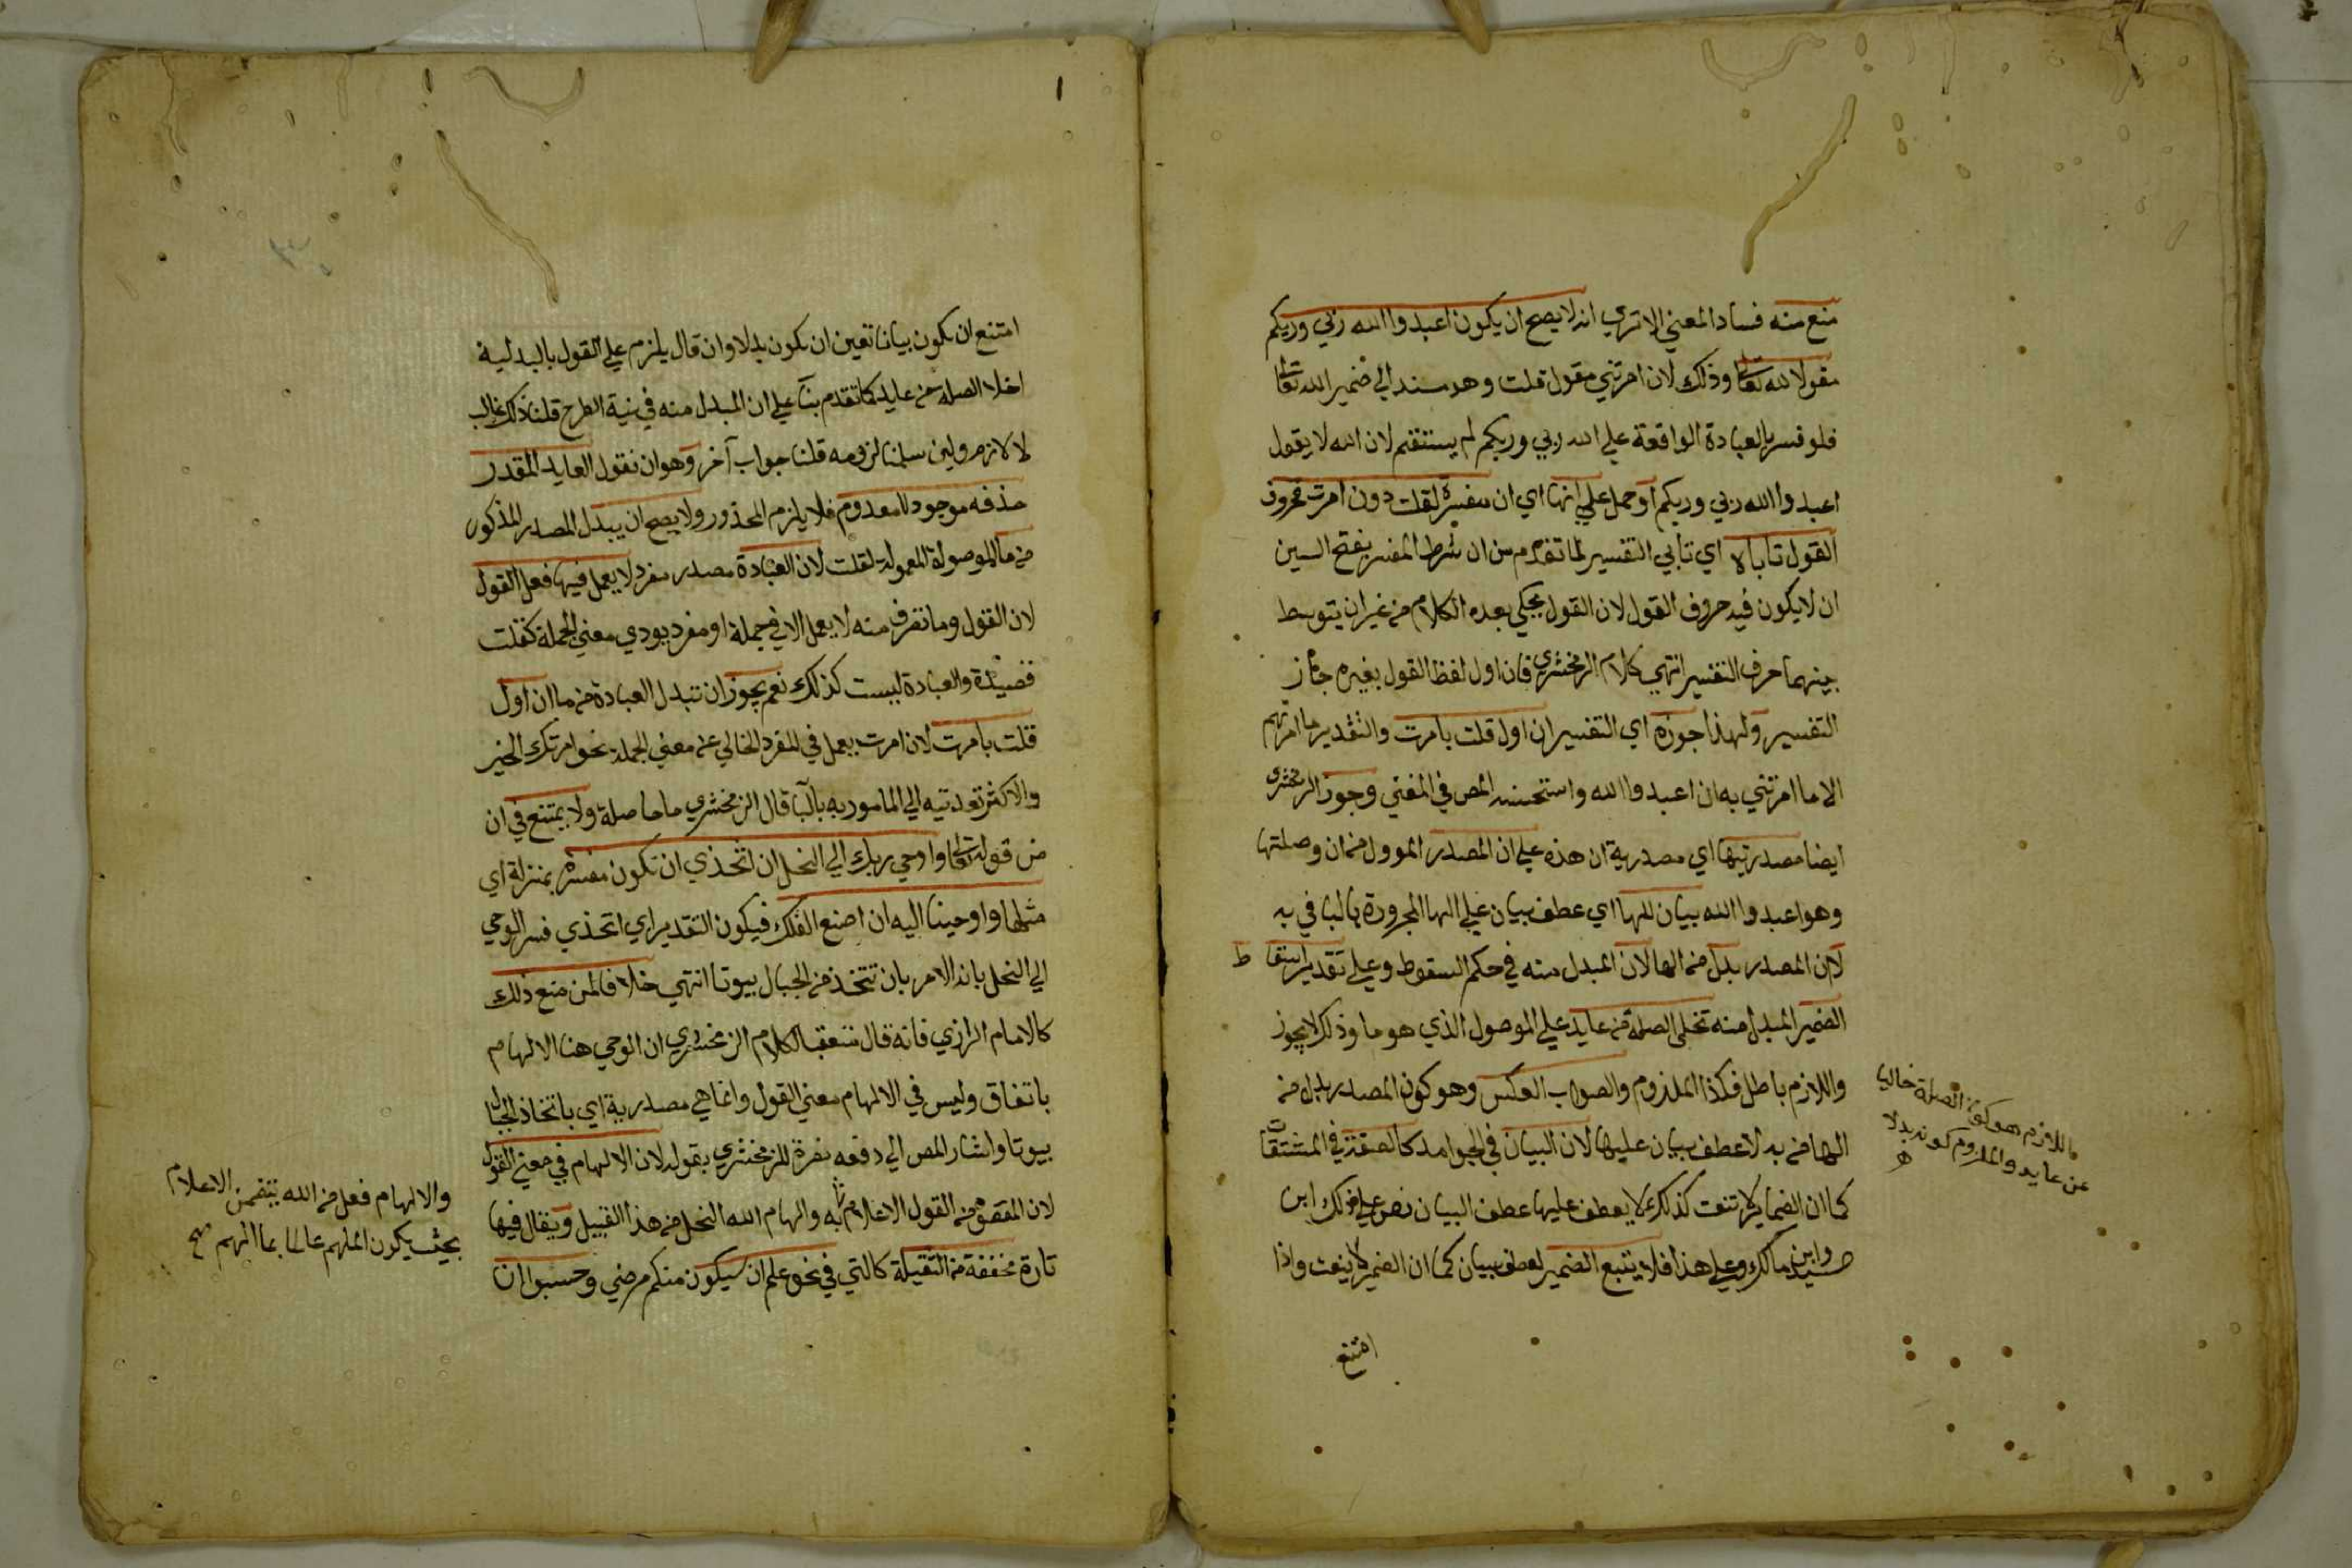 منع منه فساد المعني الا تري انه لا يصح ان يكون اعبدوا الله ربي وربكم
مقولا لله تعالى وذلك لان امرتني مقول قلت وهو مسند الي ضمير الله تعالى
فلو فسر بالعبادة الواقعة علي الله ربي وربكم لم يستقم لان الله لا يقول
اعبدوا الله ربي وربكم او حمل علي انها اي ان مفسرة لقلت دون امرت فحروف
القول تاباه اي تابي التفسير لما تقدم من ان شرط المفسر بفتح السين
ان لا يكون فيه حروف القول لان القول يحكي بعده الكلام من غير ان يتوسط
بينهما حرف التفسير انتهي كلام الزمخشري فان اول لفظ القول بغيره جاز
التفسير ولهذا جوزه اي التفسير ان اول قلت بامرت والتقدير ما امرتهم
الا ما امرتني به ان اعبدوا الله واستحسنه المص في المغني وجوز الزمخشري
ايضا مصدريتها اي مصدرية ان هذه علي ان المصدر الموول من ان وصلتها
وهو اعبدوا الله بيان للها اي عطف بيان علي الها المجرورة بالبا في به
لا ان المصدر بدل من الها لان المبدل منه في حكم السقوط وعلي تقدير اسقاط
الضمير المبدل منه تخلي الصلة من عايد علي الموصول الذي هو ما وذلك لا يجوز
واللازم باطل فكذا الملزوم والصواب العكس وهو كون المصدر بدل من
الها من به لا عطف بيان عليها لان البيان في الجوامد كالصفة في المشتقات
كما ان الضماير لا تنعت كذلك لا يعطف عليها عطف البيان نص علي ذلك ابن
السيد وابن مالك وعلي هذا فلا يتبع الضمير بعطف بيان كما ان الضمير لا ينعت واذا
امتنع
فاللازم هو كون الصلة خالية
عن عايد والملزوم كونه بدلا
هـ
امتنع ان يكون بيانا تعين ان يكون بدلا وان قال يلزم علي القول بالبدلية
اخلا الصلة من عايد كما تقدم بنا علي ان المبدل منه في نية الطرح قلنا ذلك غالب
لا لازم ولين سلمنا لزومه قلنا جواب آخر وهو ان نقول العايد المقدر
حذفه موجود لا معدوم فلا يلزم المحذور ولا يصح ان يبدل المصدر المذكور
من ما الموصولة المعمولة لقلت لان العبادة مصدر مفرد لا يعمل فيها فعل القول
لان القول وما تصرف منه لا يعمل الا في جملة او مفرد يودي معني الجملة كقلت
قصيدة والعبادة ليست كذلك نعم يجوز ان تبدل العبادة من ما ان اول
قلت بامرت لان امرت يعمل في المفرد الخالي عن معني الجملة نحو امرتك الخير
والاكثر تعديته الي المامور به بالبا قال الزمخشري ما حاصله ولا يمتنع في ان
من قوله تعالى واوحي ربك الي النحل ان اتخذي ان تكون مفسرة بمنزلة اي
مثلها واوحينا اليه ان اصنع الفلك فيكون التقدير اي اتخذي فسر الوحي
الي النحل بانه الامر بان تتخذ من الجبال بيوتا انتهي خلافا لمن منع ذلك
كالامام الرازي فانه قال متعقبا لكلام الزمخشري ان الوحي هنا الالهام
باتفاق وليس في الالهام معني القول وانما هي مصدرية اي باتخاذ الجبال
بيوتا واشار المص الي دفعه نصرة للزمخشري بقوله لان الالهام في معني القول
لان المقصود من القول الاعلام به والهام الله النحل من هذا القبيل ويقال فيها
تارة مخففة من الثقيلة كالتي في نحو علم ان سيكون منكم مرضي وحسبوا ان
والالهام فعل من الله يتضمن الاعلام
بحيث يكون الملهم عالما بما الهم صح